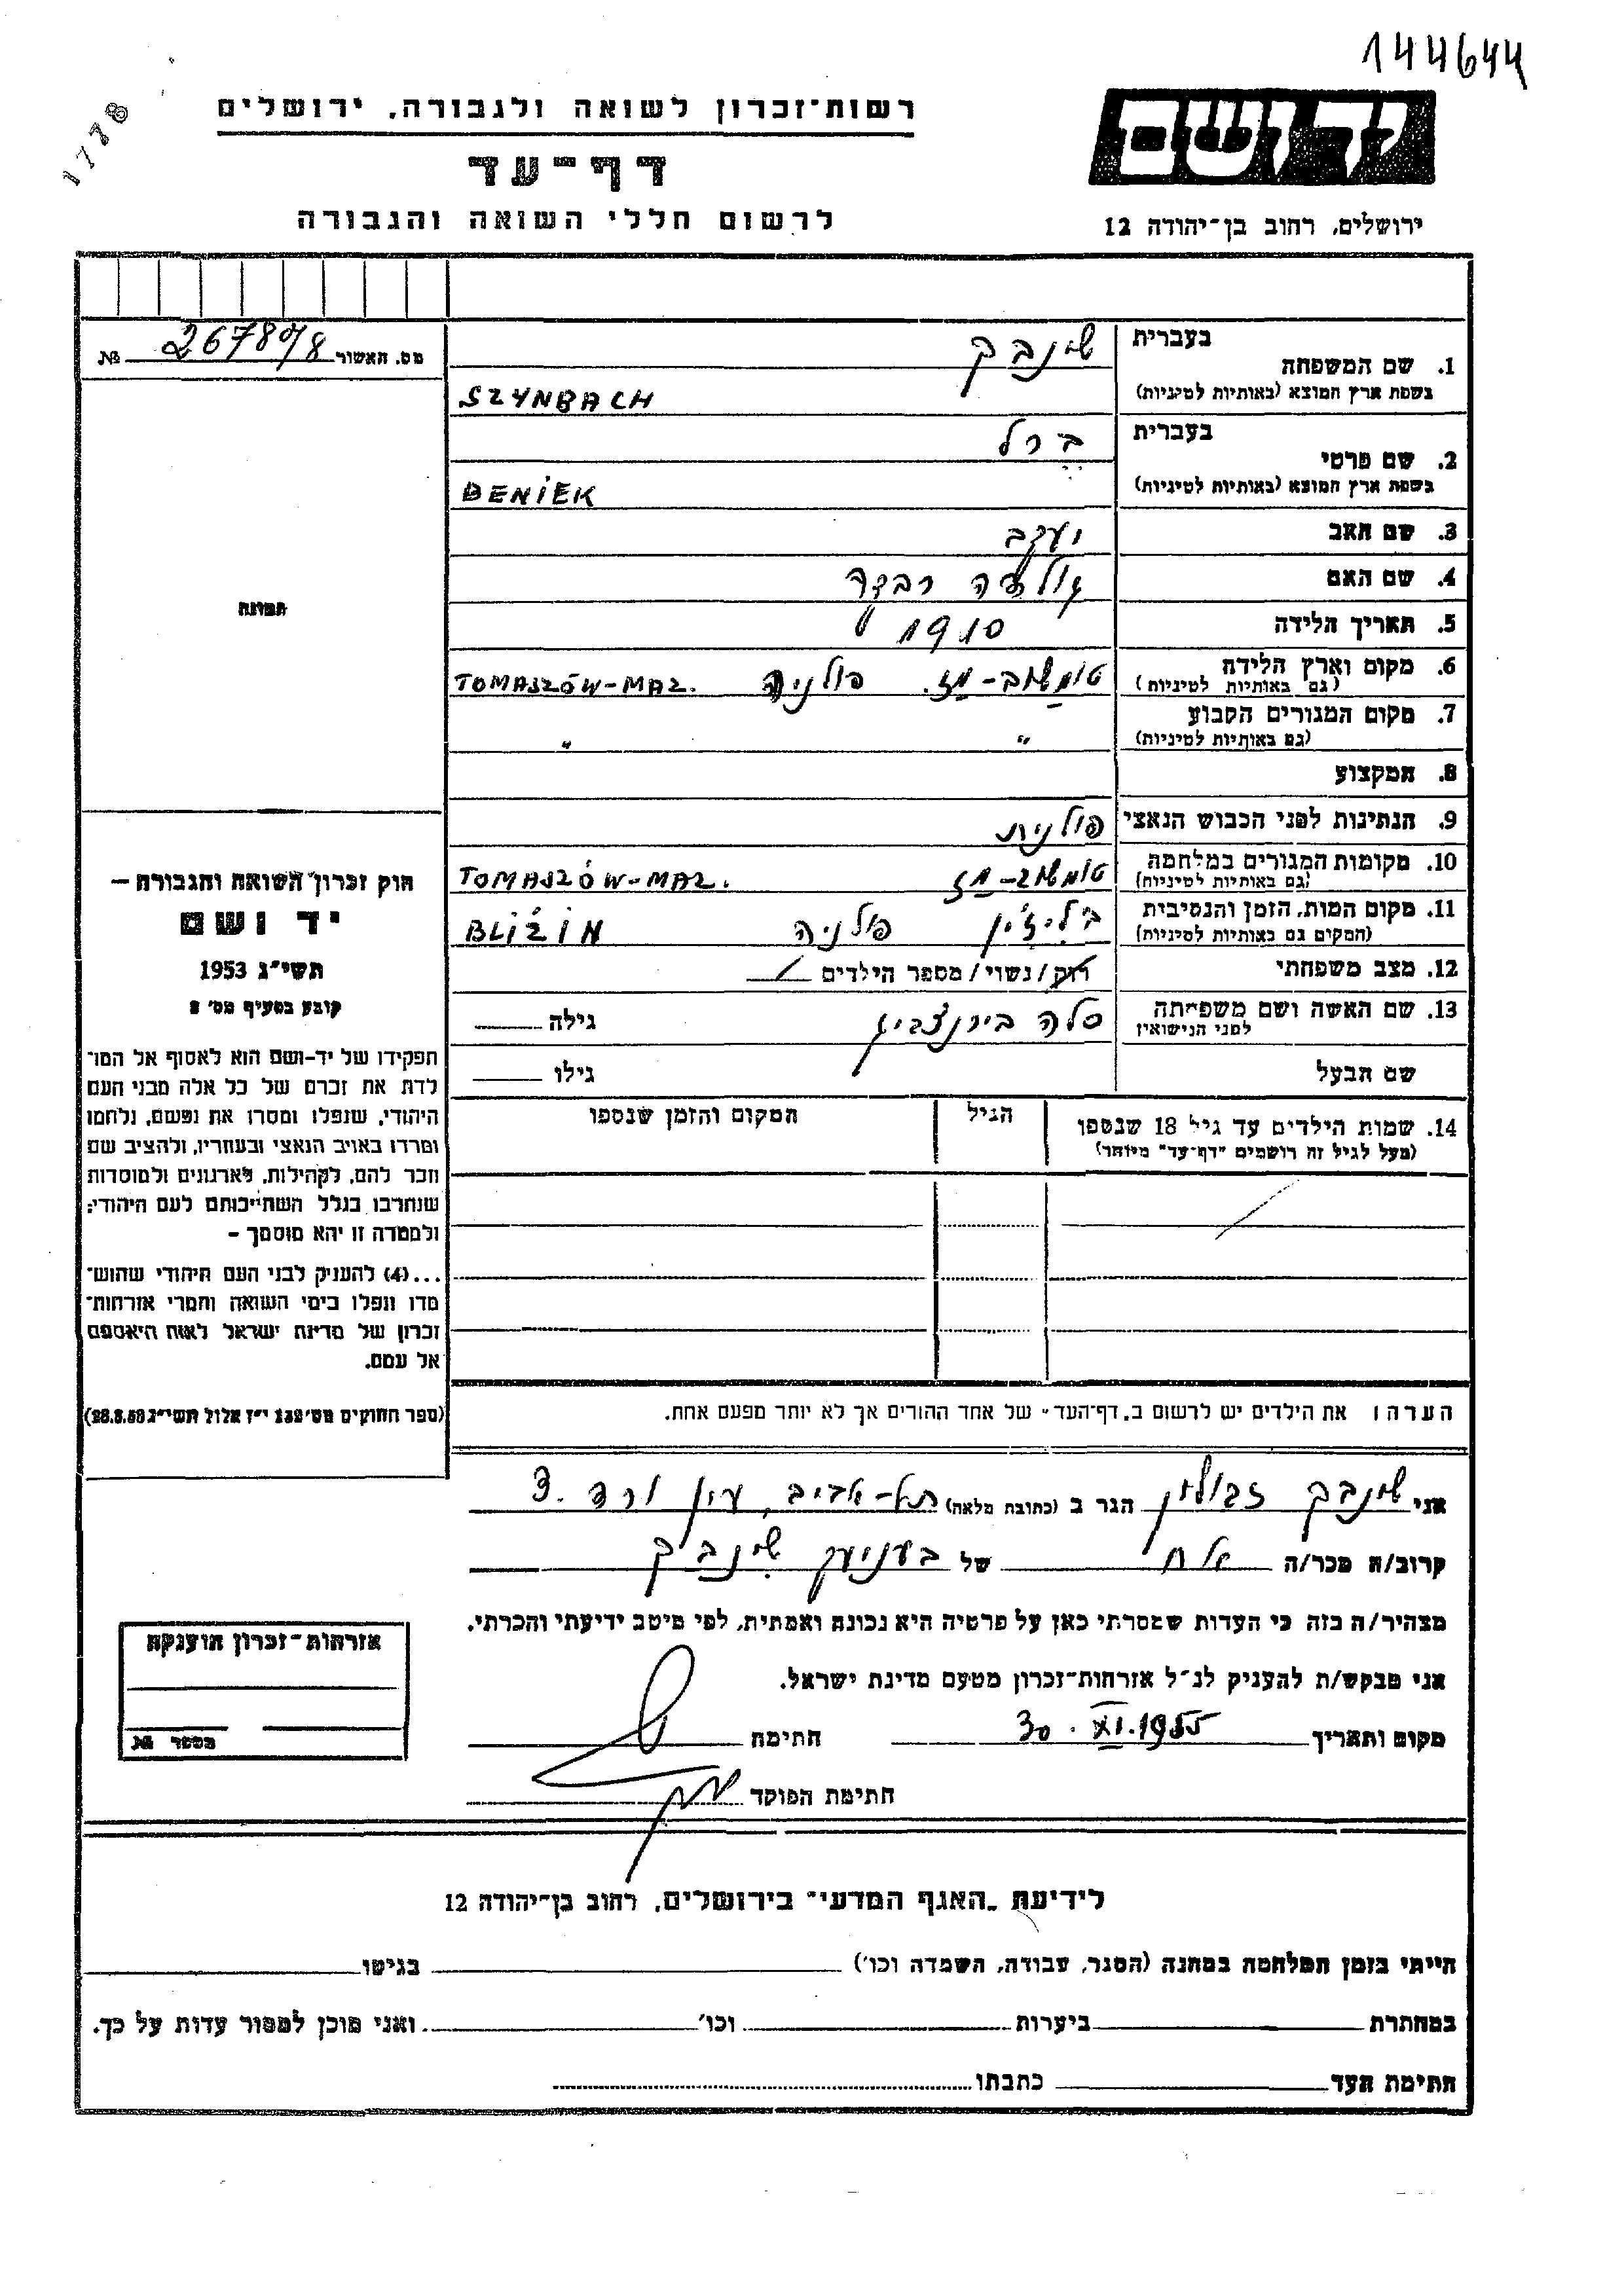 144644
1778
רשות־זכרון לשואה ולגבורה, ירושלים
דף־עד
לרשום חללי השואה והגבורה
יד ושם
ירושלים, רחוב בן־יהודה 12
מס. האשור 267808/8 №
תמונה
חוק זכרון השואה והגבורה —
יד ושם
תשי״ג 1953
קובע בסעיף מס׳ 2
תפקידו של יד-ושם הוא לאסוף אל המו־
לדת את זכרם של כל אלה מבני העם
היהודי, שנפלו ומסרו את נפשם, נלחמו
ומרדו באויב הנאצי ובעוזריו, ולהציב שם
וזכר להם, לקהילות, לארגונים ולמוסדות
שנחרבו בגלל השתייכותם לעם היהודי;
ולמטרה זו יהא מוסמך –
...(4) להעניק לבני העם היהודי שהוש־
מדו ונפלו בימי השואה והמרי אזרחות־
זכרון של מדינת ישראל לאות היאספם
אל עמם.
(ספר החוקים מס׳ 132 י״ז אלול תשי״ג 28.8.53)
1. שם המשפחה
בעברית שינבך
בשפת ארץ המוצא (באותיות לטיניות) SZYNBACH
2. שם פרטי
בעברית ברל
בשפת ארץ המוצא (באותיות לטיניות) BENIEK
3. שם האב יעקב
4. שם האם
5. תאריך הלידה 1910
6. מקום וארץ הלידה טומשוב-מז. פולניה TOMASZÓW-MAZ.
(גם באותיות לטיניות)
7. מקום המגורים הקבוע " "
(גם באותיות לטיניות)
8. המקצוע
9. הנתינות לפני הכבוש הנאצי פולנית
10. מקומות המגורים במלחמה טומשוב-מז TOMASZÓW-MAZ.
(גם באותיות לטיניות)
11. מקום המות, הזמן והנסיבות בליז'ין פולניה BLIŻIN
(המקום גם באותיות לטיניות)
12. מצב משפחתי רוק/נשוי/מספר הילדים
13. שם האשה ושם משפחתה סלה בירנצביג גילה
לפני הנישואין
שם הבעל גילו
14. שמות הילדים עד גיל 18 שנספו הגיל המקום והזמן שנספו
(מעל לגיל זה רושמים "דף-עד" מיוחד)
הערה: את הילדים יש לרשום ב„דף־העד" של אחד ההורים אך לא יותר מפעם אחת.
אני שינבך זבולון הגר ב (כתובת מלאה) תל-אביב, עין ורד 3.
קרוב/ה מכר/ה אח של בעניעק שינבך
מצהיר/ה בזה כי העדות שמסרתי כאן על פרטיה היא נכונה ואמתית, לפי מיטב ידיעתי והכרתי.
אני מבקש/ת להעניק לנ״ל אזרחות־זכרון מטעם מדינת ישראל.
מקום ותאריך 30.XI.1955 חתימה
חתימת הפוקד
אזרחות־זכרון הוענקה
מספר №
לידיעת „האגף המדעי" בירושלים, רחוב בן־יהודה 12
הייתי בזמן המלחמה במחנה (הסגר, עבודה, השמדה וכו׳) בגיטו
במחתרת ביערות וכו׳ ואני מוכן למסור עדות על כך.
חתימת העד כתבתו